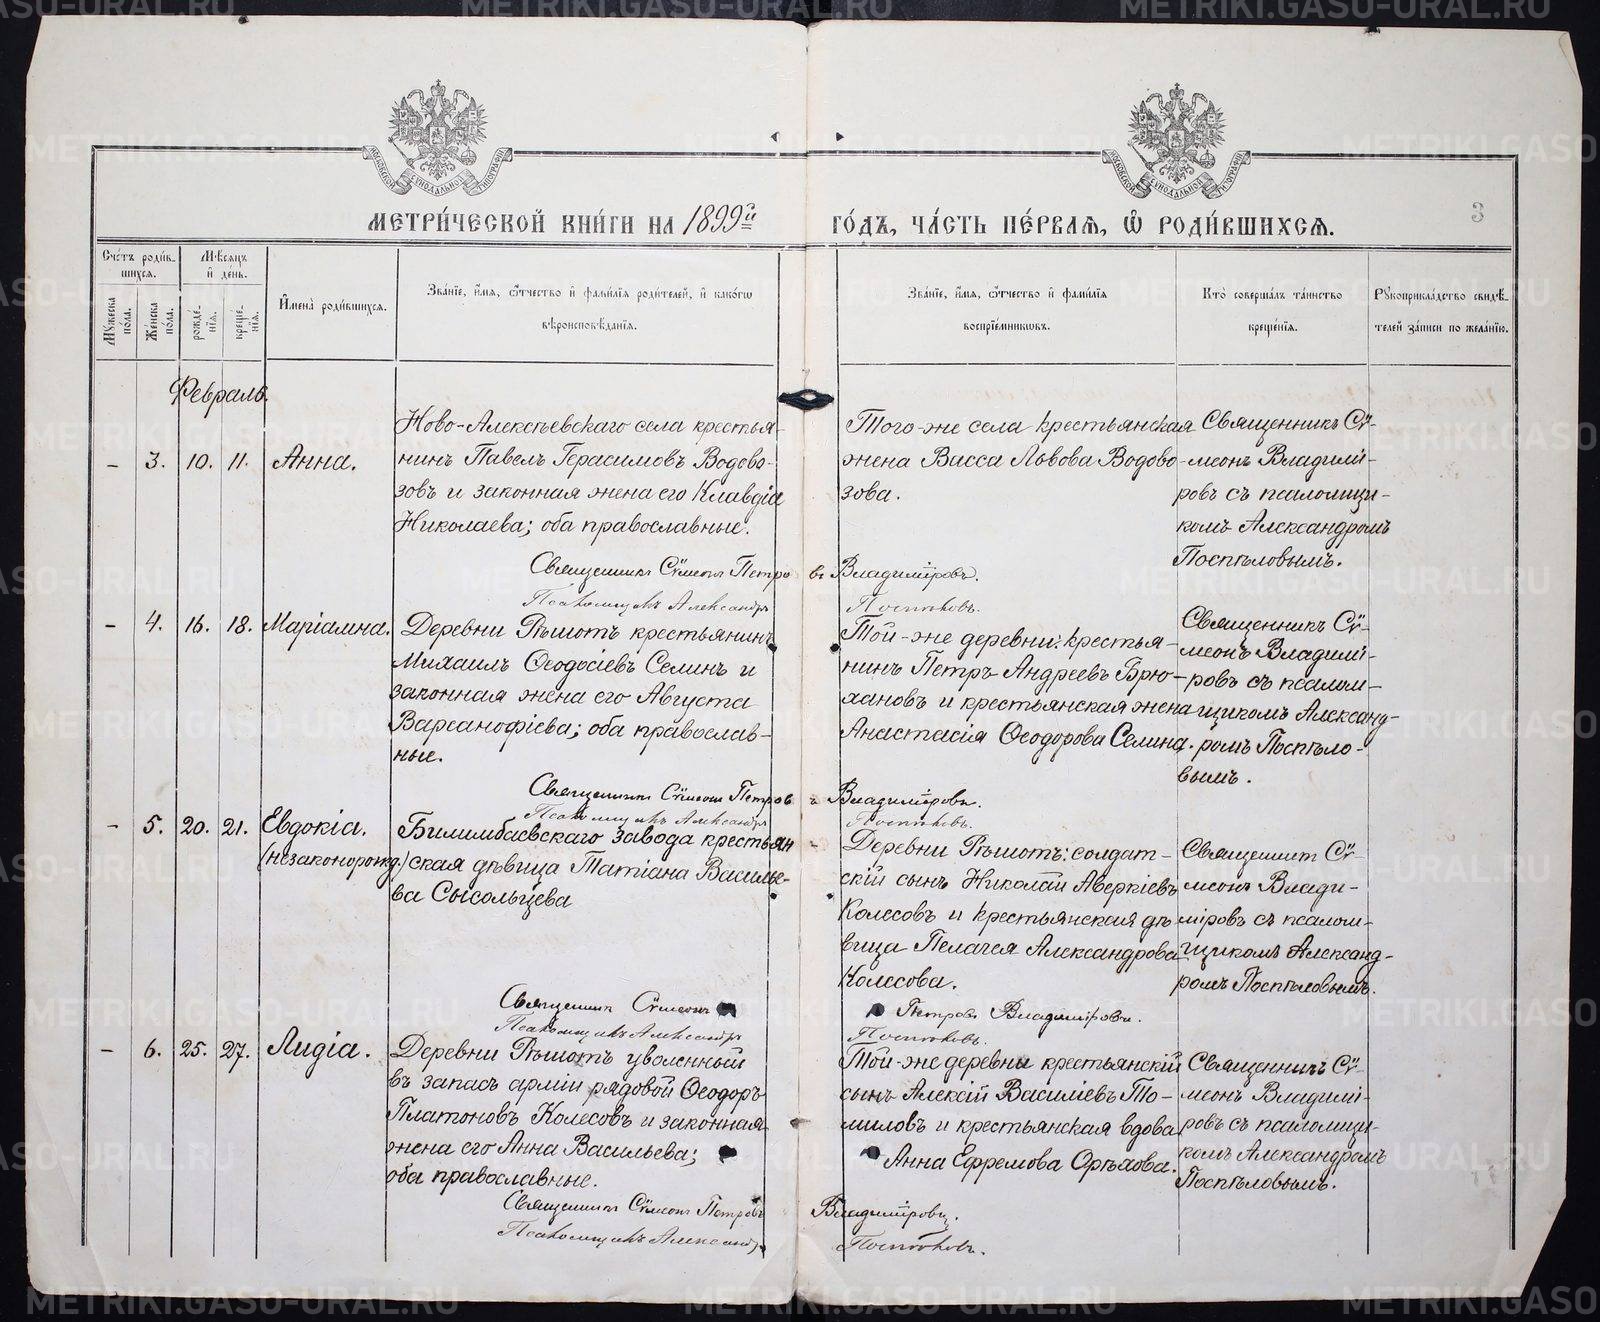 МЕТРИ́ЧЕСКОЙ КНИ́ГИ НА 1899й
ГО́ДЪ, ЧА́СТЬ ПЕ́РВАѦ, Ѽ РОДИ́ВШИХСѦ.
3
Сче́тъ роди́в-
шихсѧ.
Мꙋ́жеска по́ла.
Же́нска по́ла.
Мѣ́сѧцъ
и҆ де́нь.
рожде́-
нїѧ.
креще́-
нїѧ.
И҆мена̀ роди́вшихсѧ.
Зва́нїе, и҆́мѧ, ѻ҆́тчество и҆ фамилїѧ роди́телей, и҆ како́гѡ
вѣроисповѣ́данїѧ.
Зва́нїе, и҆́мѧ, ѻ҆́тчество и҆ фами́лїѧ
воспрїе́мникѡвъ.
Кто̀ соверша́лъ та́инство
креще́нїѧ.
Рꙋкоприкла́дство свидѣ́-
телей за́писи по жела́нїю.
Февраль.
– 3. 10. 11. Анна.
Ново-Алексѣевскаго села крестья-
нинъ Павелъ Герасимовъ Водово-
зовъ и законная жена его Клавдія
Николаева; оба православные.
Того-же села крестьянская
жена Васса Львова Водово-
зова.
Священникъ Сѵ-
меонъ Владимі-
ровъ съ псаломщи-
комъ Александромъ
Поспѣловымъ.
Священникъ Сѵмеонъ Петровъ Владиміровъ.
Псаломщикъ Александръ Поспѣловъ.
– 4. 16. 18. Маріамна.
Деревни Рѣшотъ крестьянинъ
Михаилъ Ѳеодосіевъ Селинъ и
законная жена его Августа
Варсанофіева; оба православ-
ные.
Той-же деревни: крестья-
нинъ Петръ Андреевъ Брю-
хановъ и крестьянская жена
Анастасія Ѳеодорова Селина.
Священникъ Сѵ-
меонъ Владимі-
ровъ съ псалом-
щикомъ Александ-
ромъ Поспѣло-
вымъ.
Священникъ Сѵмеонъ Петровъ Владиміровъ.
Псаломщикъ Александръ Поспѣловъ.
– 5. 20. 21. Евдокія.
(незаконорожд.)
Билимбаевскаго завода крестьян-
ская дѣвица Татіана Василье-
ва Сысольцева
Деревни Рѣшотъ: солдат-
скій сынъ Николай Аверкіевъ
Колесовъ и крестьянская дѣ-
вица Пелагея Александрова
Колесова.
Священникъ Сѵ-
меонъ Влади-
міровъ съ псалом-
щикомъ Александ-
ромъ Поспѣловымъ.
Священникъ Сѵмеонъ Петровъ Владиміровъ.
Псаломщикъ Александръ Поспѣловъ.
– 6. 25. 27. Лидія.
Деревни Рѣшотъ уволенный
въ запасъ арміи рядовой Ѳеодоръ
Платоновъ Колесовъ и законная
жена его Анна Васильева;
оба православные.
Той-же деревни крестьянскій
сынъ Алексій Василіевъ То-
миловъ и крестьянская вдова
Анна Ефремова Орѣхова.
Священникъ Сѵ-
меонъ Владимі-
ровъ съ псаломщи-
комъ Александромъ
Поспѣловымъ.
Священникъ Сѵмеонъ Петровъ Владиміровъ.
Псаломщикъ Александръ Поспѣловъ.
METRIKI.GASO-URAL.RU